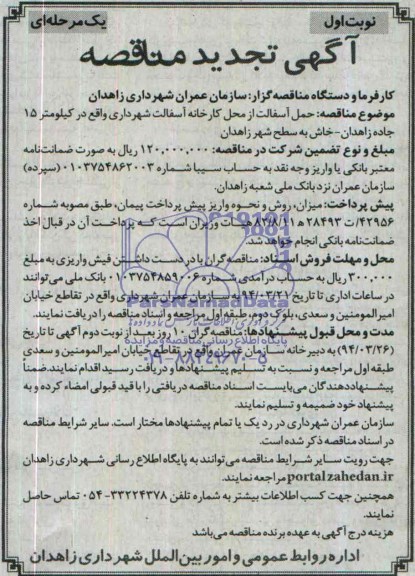 نوبت اول
یک مرحله‌ای
آگهی تجدید مناقصه
کارفرما و دستگاه مناقصه گزار: سازمان عمران شهرداری زاهدان
موضوع مناقصه: حمل آسفالت از محل کارخانه آسفالت شهرداری واقع در کیلومتر ۱۵
جاده زاهدان - خاش به سطح شهر زاهدان
مبلغ و نوع تضمین شرکت در مناقصه: ۱۲۰,۰۰۰,۰۰۰ ریال به صورت ضمانت‌نامه
معتبر بانکی یا واریز وجه نقد به حساب سیبا شماره ۰۱۰۳۷۵۴۸۶۲۰۰۳ (سپرده)
سازمان عمران نزد بانک ملی شعبه زاهدان.
پیش پرداخت: میزان، روش و نحوه واریز پیش پرداخت پیمان، طبق مصوبه شماره
۴۲۹۵۶/ت ۲۸۴۹۳ ه ۸۲/۸/۱۱ هیات وزیران است که پرداخت آن در قبال اخذ
ضمانت‌نامه بانکی انجام خواهد شد.
محل و مهلت فروش اسناد: مناقصه گران با در دست داشتن فیش واریزی به مبلغ
۳۰۰,۰۰۰ ریال به حساب درآمدی شماره ۰۱۰۳۷۵۴۸۵۹۰۰۶ بانک ملی می‌توانند
در ساعات اداری تا تاریخ ۹۴/۰۳/۲۱ به سازمان عمران شهرداری واقع در تقاطع خیابان
امیرالمومنین و سعدی، بلوک دوم، طبقه اول مراجعه و اسناد مناقصه را دریافت نمایند.
مدت و محل قبول پیشنهادها: مناقصه گران ۱۰ روز بعد از نوبت دوم آگهی تا تاریخ
(۹۴/۰۳/۲۶) به دبیرخانه سازمان عمران واقع در تقاطع خیابان امیرالمومنین و سعدی
طبقه اول مراجعه و نسبت به تسلیم پیشنهادها و دریافت رسید اقدام نمایند. ضمناً
پیشنهاددهندگان می‌بایست اسناد مناقصه دریافتی را با قید قبولی امضاء کرده و به
پیشنهاد خود ضمیمه و تسلیم نمایند.
سازمان عمران شهرداری در رد یک یا تمام پیشنهادها مختار است. سایر شرایط مناقصه
در اسناد مناقصه ذکر شده است.
جهت رویت سایر شرایط مناقصه می‌توانند به پایگاه اطلاع رسانی شهرداری زاهدان
portalzahedan.ir مراجعه نمایند.
همچنین جهت کسب اطلاعات بیشتر به شماره تلفن ۳۳۲۲۴۳۷۸-۰۵۴ تماس حاصل
نمایند.
هزینه درج آگهی به عهده برنده مناقصه می‌باشد
اداره روابط عمومی و امور بین الملل شهرداری زاهدان
ParsNamadData
پایگاه اطلاع رسانی مناقصه و مزایده